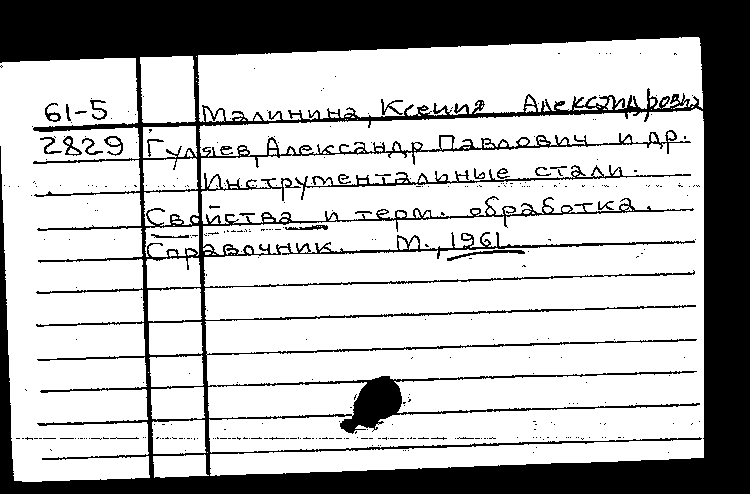 61-5 Малинина, Ксения Александровна
2829 Гуляев, Александр Павлович и др.
Инструментальные стали.
Свойства и терм. обработка.
Справочник. М., 1961.